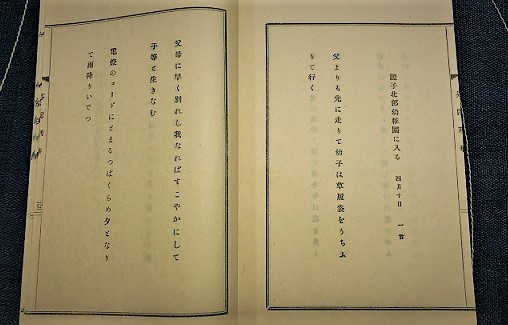 子北部幼稚園に入る 四月十日 一首
父よりも先に走りて幼子は草履袋をうちふ
りて行く
父母に早く別れし我なればすこやかにして
子等と生きなむ
電燈のコードにとまるつばくらめ夕となり
て雨降りいでつ